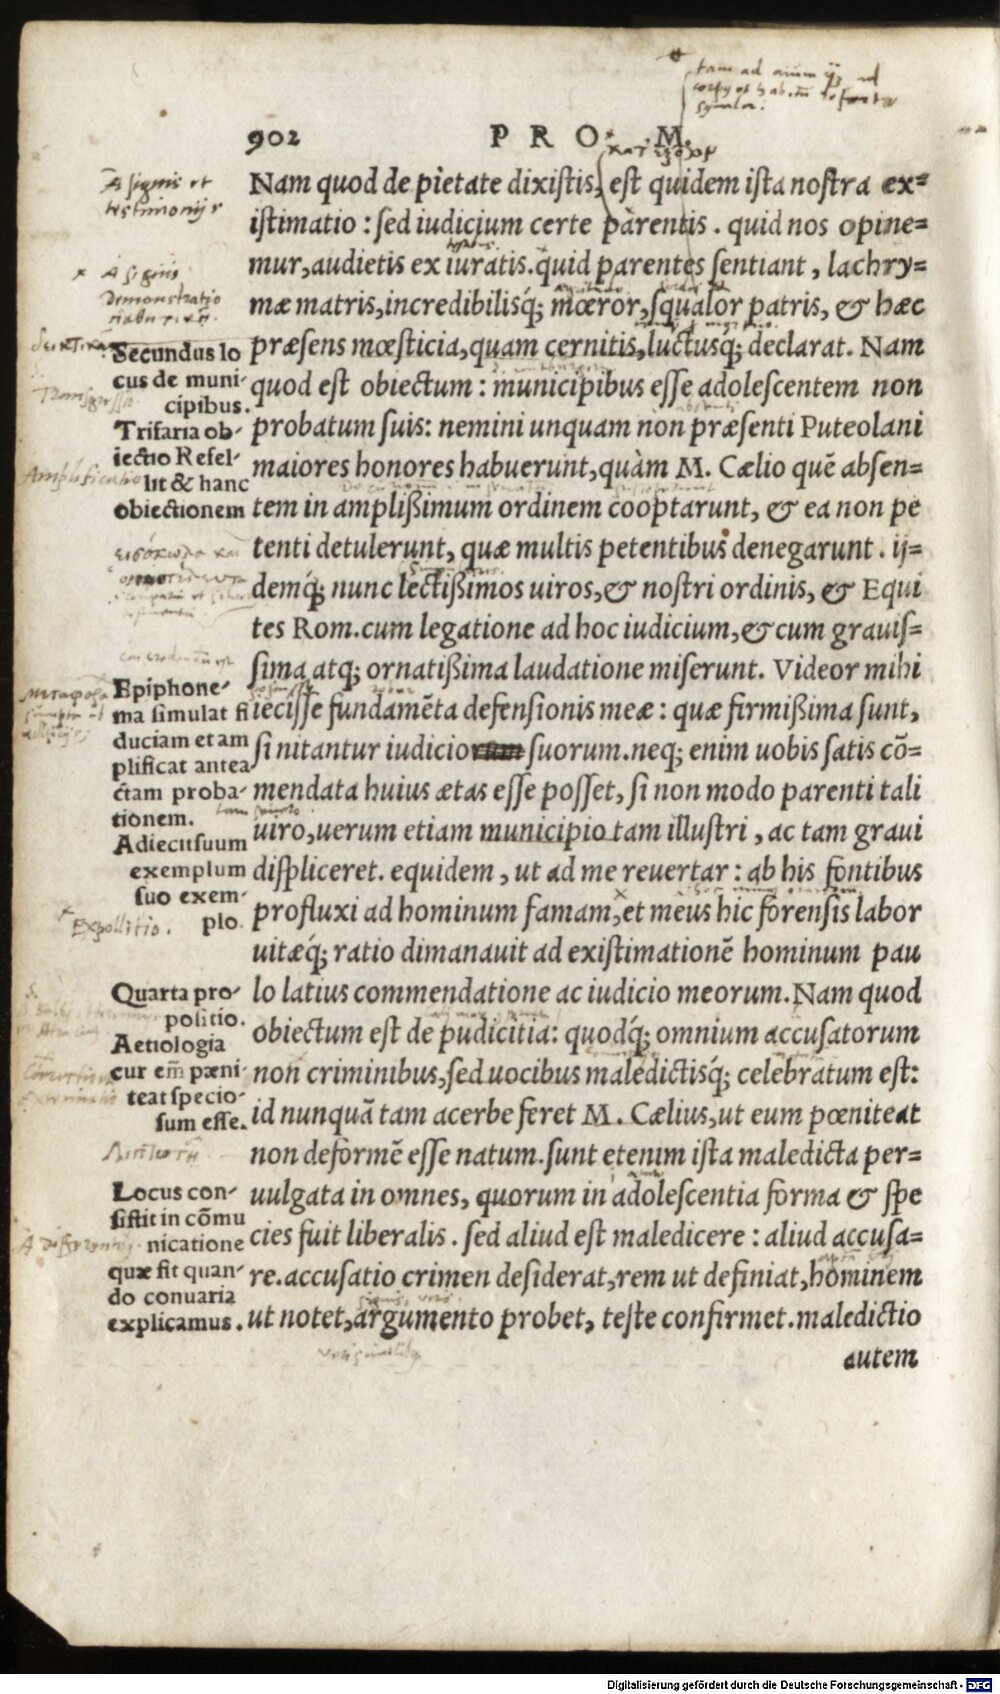 902 PRO. M.
Nam quod de pietate dixistis, est quidem ista nostra ex=
istimatio : sed iudicium certe parentis . quid nos opine=
mur, audietis ex iuratis. quid parentes sentiant , lachry=
mæ matris, incredibilisq́; mœror, squalor patris, & hæc
præsens mœsticia, quam cernitis, luctusq́; declarat. Nam
quod est obiectum : municipibus esse adolescentem non
probatum suis: nemini unquam non præsenti Puteolani
maiores honores habuerunt, quàm M. Cælio quē absen=
tem in amplißimum ordinem cooptarunt, & ea non pe
tenti detulerunt, quæ multis petentibus denegarunt . ij=
demq́; nunc lectißimos uiros, & nostri ordinis, & Equi
tes Rom. cum legatione ad hoc iudicium, & cum grauis=
sima atq; ornatißima laudatione miserunt. Videor mihi
iecisse fundamēta defensionis meæ : quæ firmißima sunt,
si nitantur iudicio suorum. neq; enim uobis satis cō=
mendata huius ætas esse posset, si non modo parenti tali
uiro, uerum etiam municipio tam illustri , ac tam graui
displiceret. equidem , ut ad me reuertar : ab his fontibus
profluxi ad hominum famam, et meus hic forensis labor
uitæq́; ratio dimanauit ad existimationē hominum pau
lo latius commendatione ac iudicio meorum. Nam quod
obiectum est de pudicitia: quodq́; omnium accusatorum
non criminibus, sed uocibus maledictisq́; celebratum est:
id nunquā tam acerbe feret M. Cælius, ut eum pœniteat
non deformē esse natum. sunt etenim ista maledicta per=
uulgata in omnes, quorum in adolescentia forma & spe
cies fuit liberalis . sed aliud est maledicere : aliud accusa=
re. accusatio crimen desiderat, rem ut definiat, hominem
ut notet, argumento probet, teste confirmet. maledictio
autem
A signis et
testimonijs
A signis
Demonstratio
Secundus lo
cus de muni-
cipibus.
Trifaria ob-
iectio Refel-
lit & hanc
obiectionem
Amplificatio
Epiphone-
ma simulat fi
duciam et am
plificat antea
ctam proba-
tionem.
Adiecit suum
exemplum
suo exem-
plo.
Expollitio.
Quarta pro-
positio.
Aetiologia
cur em̄ pæni-
teat specio-
sum esse.
Locus con-
sistit in cōmu
nicatione
quæ fit quan-
do conuaria
explicamus.
Digitalisierung gefördert durch die Deutsche Forschungsgemeinschaft - DFG